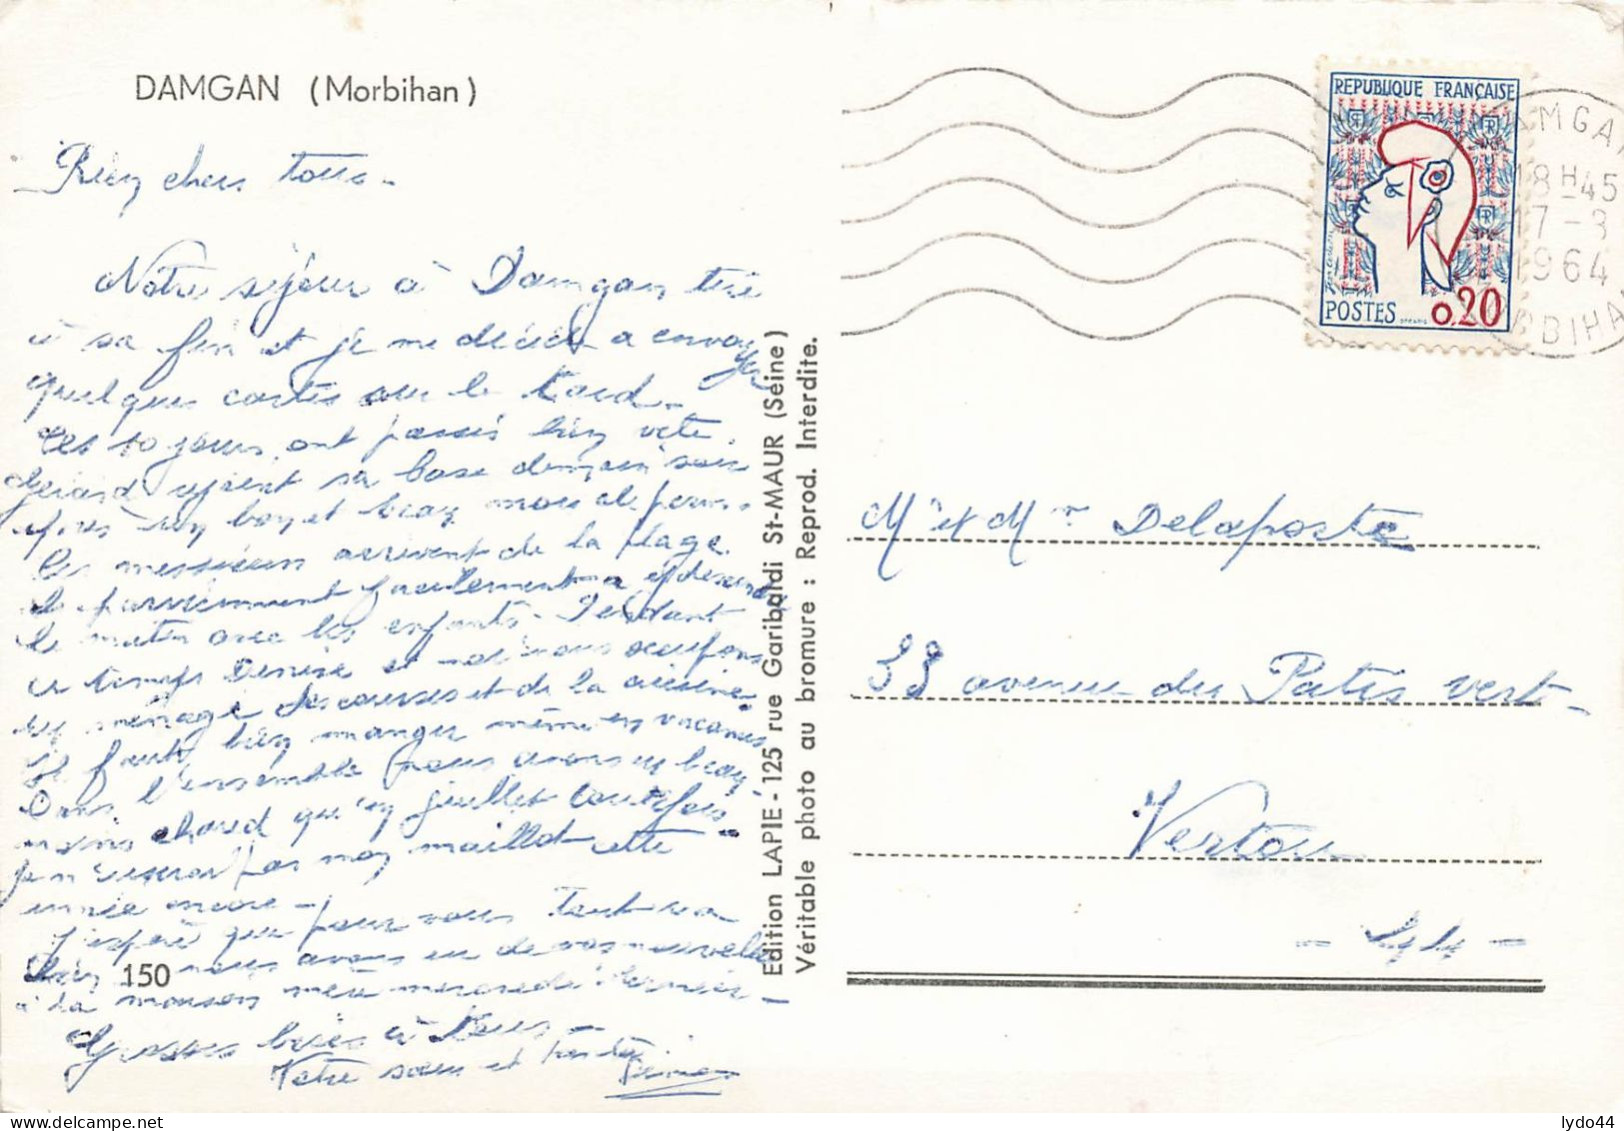 DAMGAN (Morbihan)
Bien chers tous -
Notre séjour à Damgan tire
à sa fin et je me décide à envoyer
quelques cartes sur le tard -
Ces 10 jours ont passés bien vite.
Gérard rejoint sa base demain soir
après un bon et beau mois de perm -
les messieurs arrivent de la plage.
le matin avec les enfants - Pendant
ce temps Denise et moi nous occupons
du ménage des courses et de la cuisine
il faut bien manger même en vacances
Dans l'ensemble nous avons eu beau
moins chaud qu'en juillet toutefois
je n'ai pas mon maillot cette
année encore -
J'espère que pour vous tout va
bien nous avons eu de vos nouvelles
à la maison mère mercredi dernier -
Grosses bises à tous -
Votre sœur et tante
150
Edition LAPIE - 125 rue Garibaldi St-MAUR (Seine)
Véritable photo au bromure : Reprod. Interdite.
REPUBLIQUE FRANÇAISE
POSTES 0.20
18H45
17-8
1964
Mr et Mme Delaposte
33 avenue du Patis vert -
Vertou
- 44 -
delcampe.net
lydo44